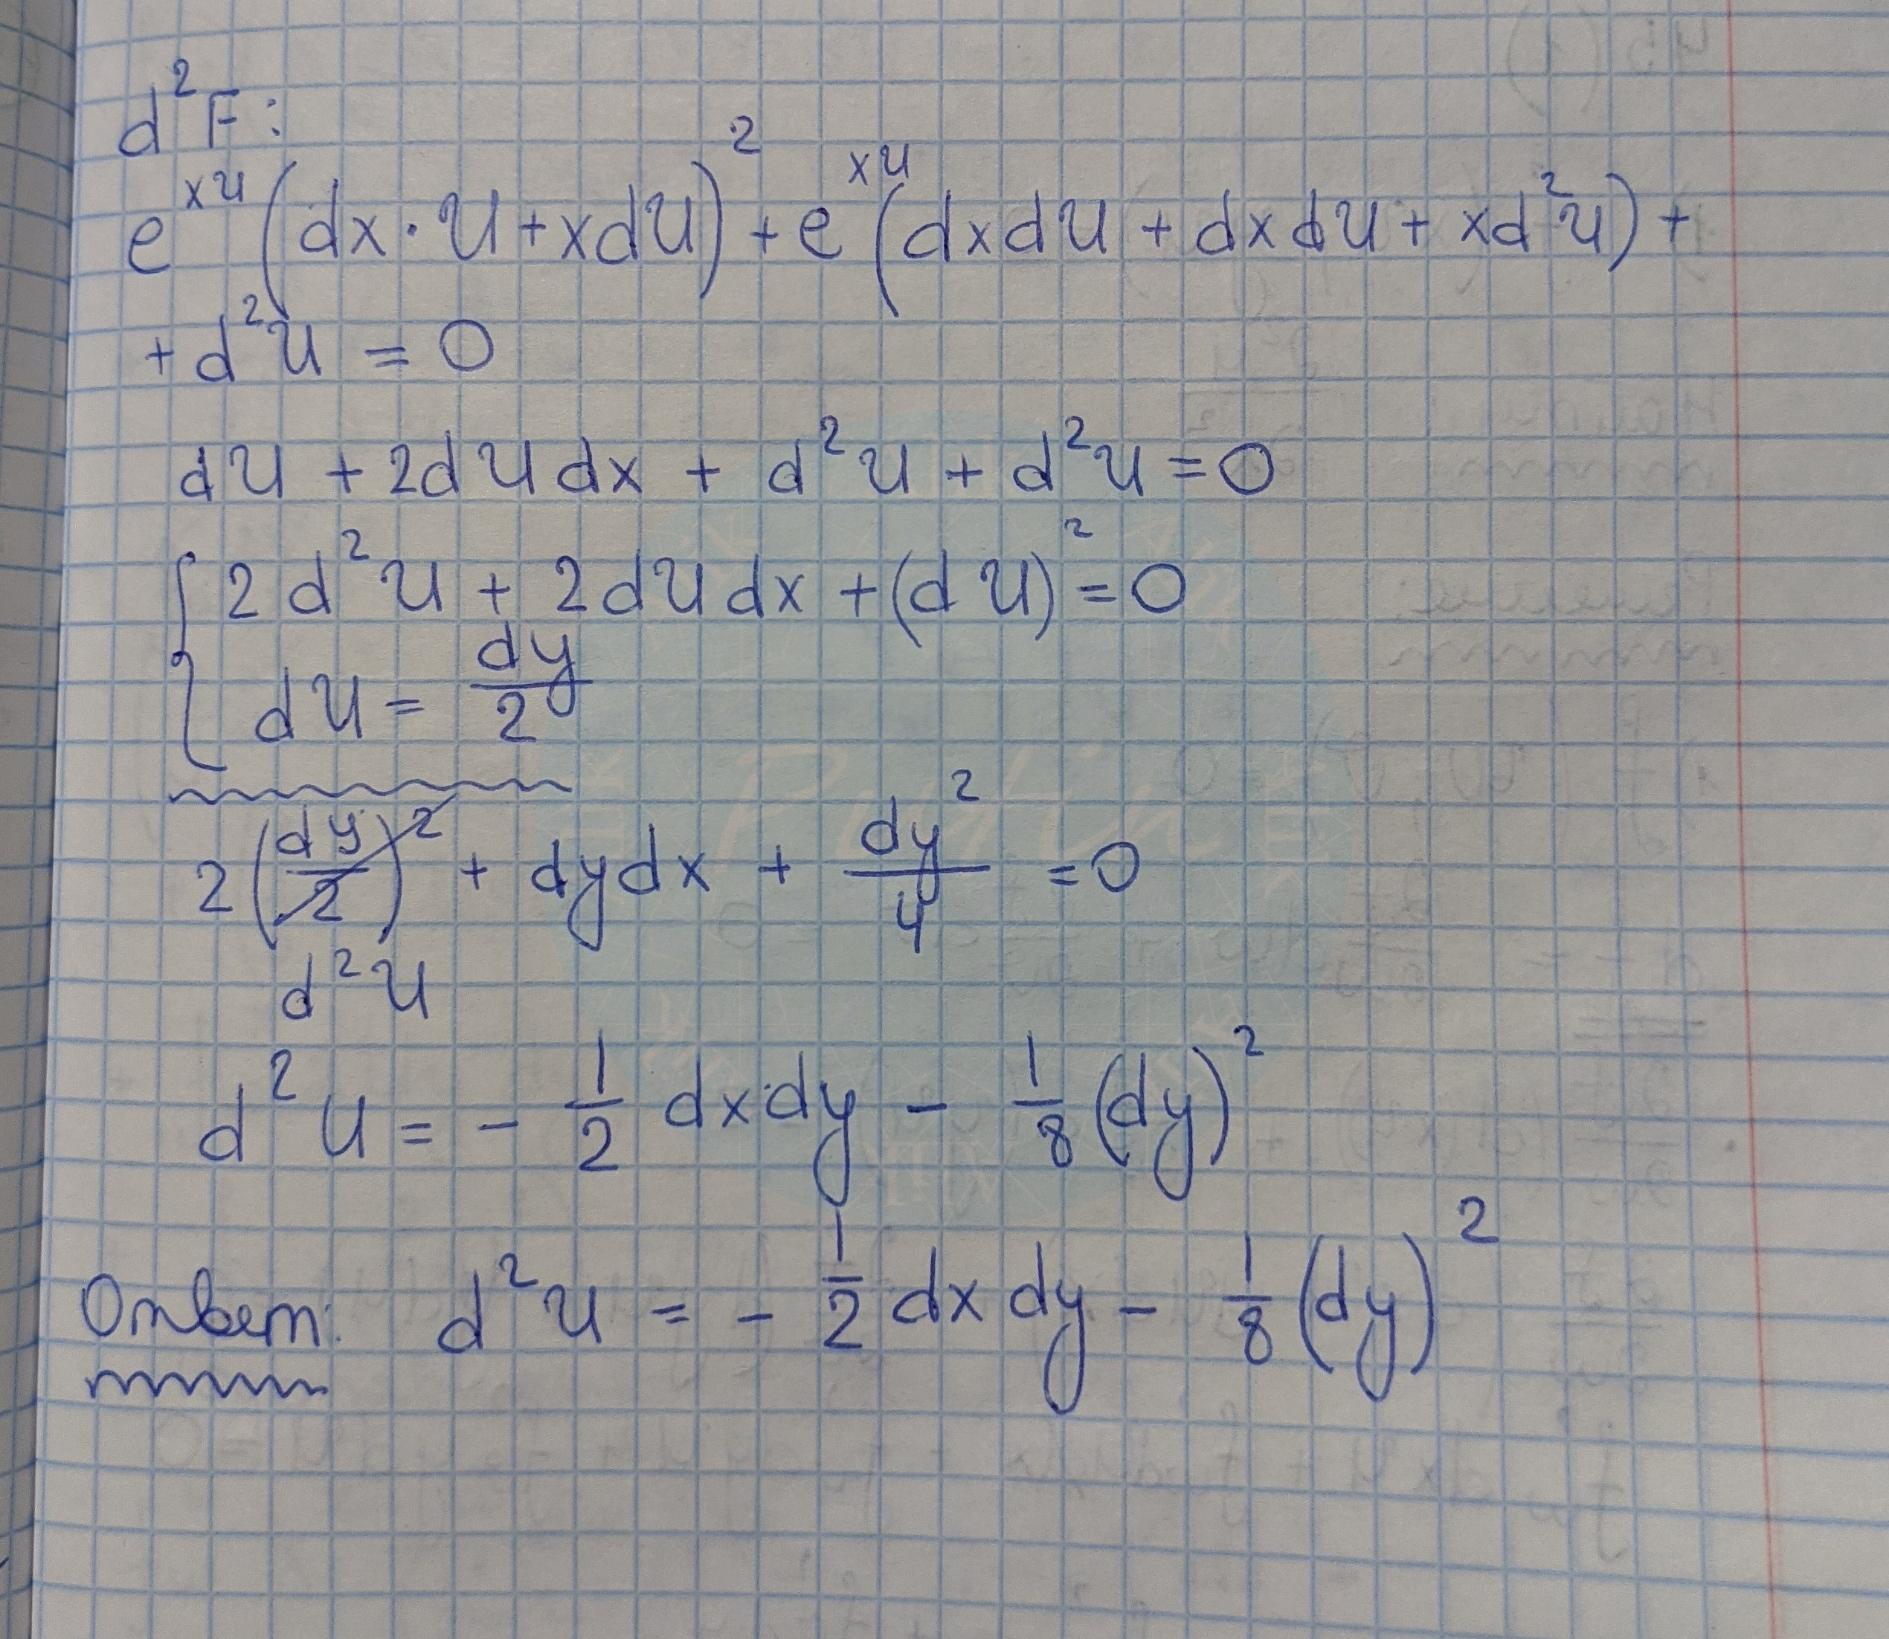 d²F:
e^{xu}(dx·u+xdu)² + e^{xu}(dxdu + dxdu + xd²u) +
+ d²u = 0
du + 2dudx + d²u + d²u = 0
{ 2d²u + 2dudx + (du)² = 0
du = dy/2
2(dy/2)² + dydx + dy²/4 = 0
d²u
d²u = - 1/2 dxdy - 1/8 (dy)²
Ответ: d²u = - 1/2 dx dy - 1/8 (dy)²